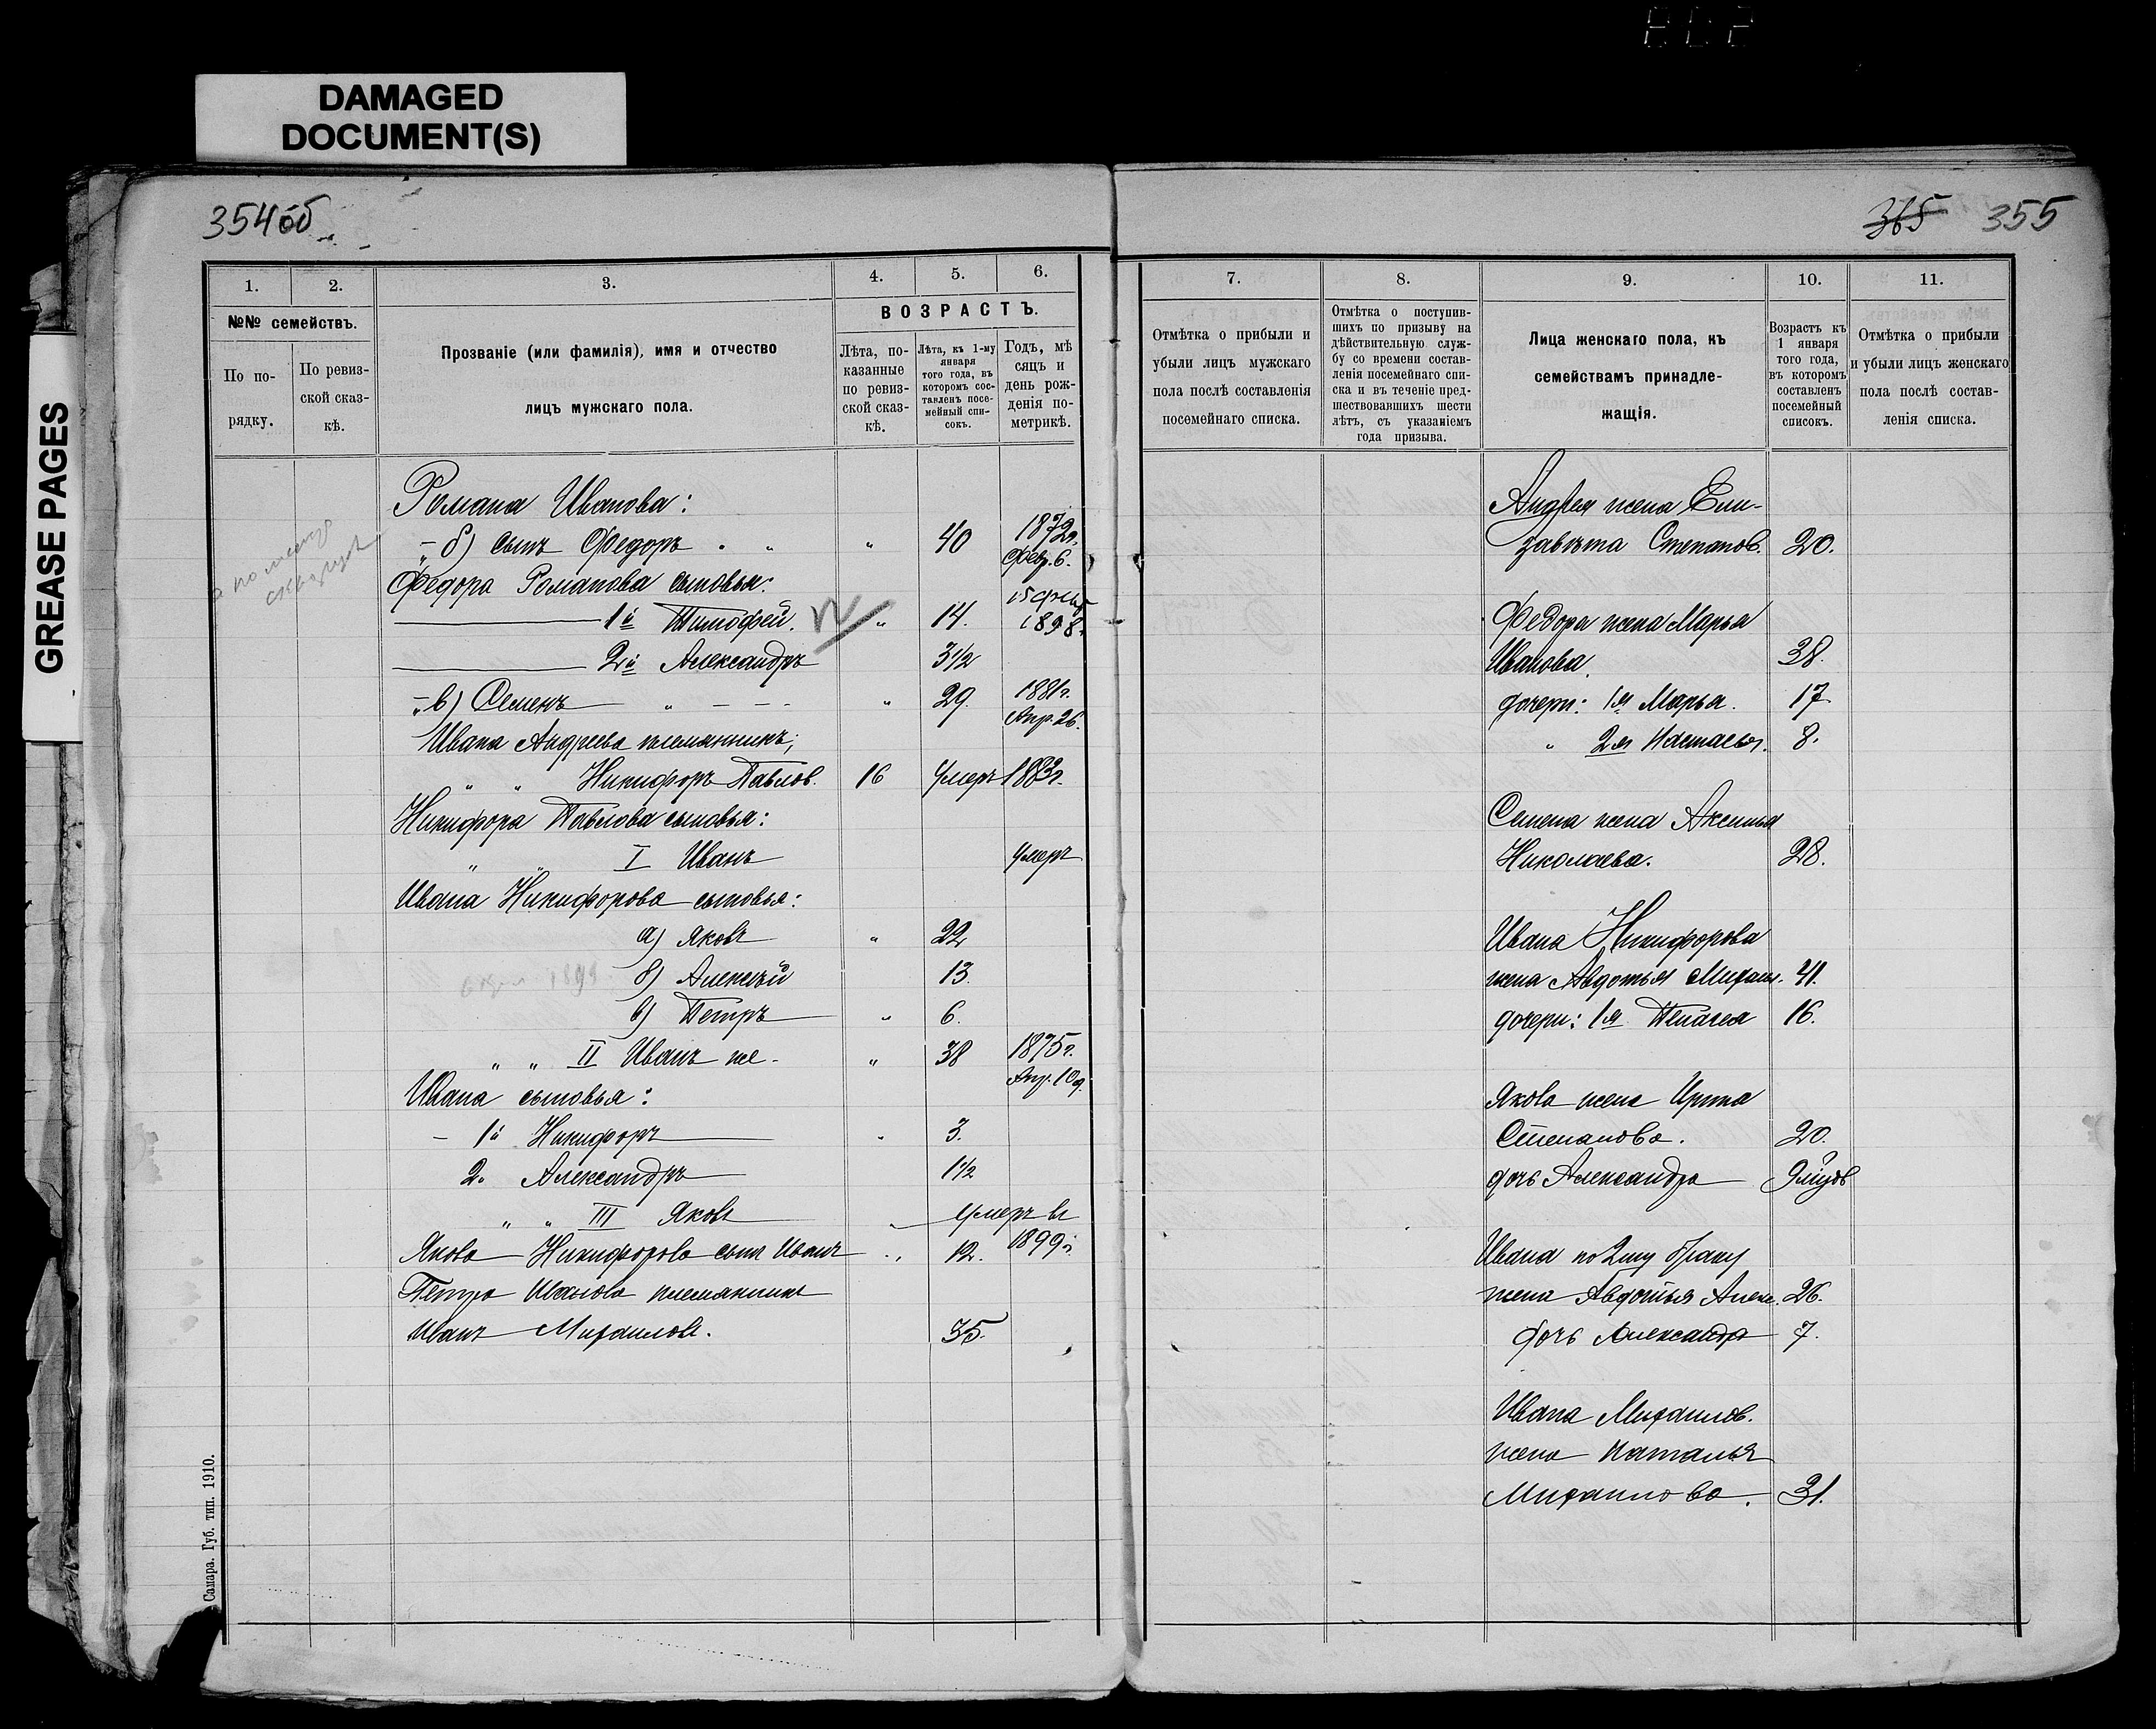 DAMAGED
DOCUMENT(S)
GREASE PAGES
354об
1.
2.
3.
4.
5.
6.
№№ семействъ.
ВОЗРАСТЪ.
По по-
рядку.
По ревиз-
ской сказ-
кѣ.
Прозваніе (или фамилія), имя и отчество
лицъ мужскаго пола.
Лѣта, по-
казанные
по ревиз-
ской сказ-
кѣ.
Лѣта, къ 1-му
января
того года, въ
которомъ сос-
тавленъ посе-
мейный спи-
сокъ.
Годъ, мѣ
сяцъ и
день рож-
денія по-
метрикѣ.
Романа Иванова:
„ б) сынъ Федоръ „ „ „ 40 1872г.
Февр. 6.
Федора Романова сыновья:
1й Тимофей. „ 14. 15 1898г.
2й Александръ 3½
„ в) Семенъ „ „ 29. 1881г.
Апр. 26.
Ивана Андреева племянникъ;
„ „ Никифоръ Павлов. 16 умеръ 1883г.
Никифора Павлова сыновья:
„ „ I Иванъ умеръ
Ивана Никифорова сыновья:
а) Яковъ „ 22
1899 б) Алексѣй 13.
в) Петръ „ 6.
„ „ II Иванъ же. „ 38 1875г.
Апр. 10д.
Ивана сыновья:
– 1й Никифоръ „ 3.
2. Александръ 1½
„ „ III Яковъ умеръ въ
1899г.
Якова Никифорова сынъ Иванъ „ 12.
Петра Иванова племянникъ
Иванъ Михаиловъ. 35.
Самара. Губ. тип. 1910.
365 355
7.
8.
9.
10.
11.
Отмѣтка о прибыли и
убыли лицъ мужскаго
пола послѣ составленія
посемейнаго списка.
Отмѣтка о поступив-
шихъ по призыву на
дѣйствительную служ-
бу со времени состав-
ленія посемейнаго спи-
ска и въ теченіе пред-
шествовавшихъ шести
лѣтъ, съ указаніемъ
года призыва.
Лица женскаго пола, къ
семействамъ принадле-
жащія.
Возрастъ къ
1 января
того года,
въ которомъ
составленъ
посемейный
списокъ.
Отмѣтка о прибыли
и убыли лицъ женскаго
пола послѣ состав-
ленія списка.
Андрея жена Ели-
завѣта Степанов. 20.
Федора жена Марья
Иванова. 38.
дочери: 1я Марья. 17
„ 2я Настасья. 8.
Семена жена Аксинья
Николаева. 28.
Ивана Никифорова
жена Авдотья Михаил. 41.
дочери: 1я Пелагея 16.
Якова жена Ирина
Степанова. 20.
дочь Александра
Ивана по 2му браку
жена Авдотья Алекс. 26.
дочь Александра 7.
Ивана Михаилов.
жена Наталья
Михаилова. 31.